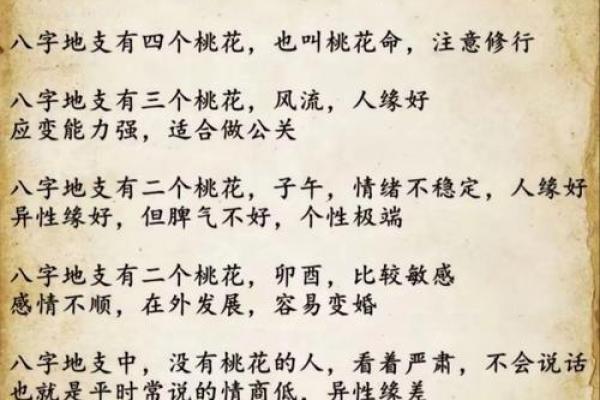 八字地支有四个桃花，也叫桃花命，注意修行
八字地支有三个桃花，风流，人缘好
应变能力强，适合做公关
八字地支有二个桃花，子午，情绪不稳定，人缘好
异性缘好，但脾气不好，个性极端
八字地支有二个桃花，卯酉，比较敏感
感情不顺，在外发展，容易变婚
八字地支中，没有桃花的人，看着严肃，不会说话
也就是平时常说的情商低，异性缘差